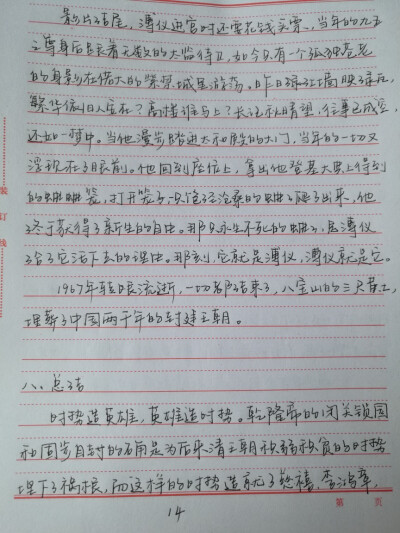 影片结尾，溥仪进宫时还要花钱买票，当年的九五
之尊身后总是有无数的太监侍卫，如今只有一个孤独苍老
的身影在偌大的紫禁城里游荡。昨日绿瓦墙映绿庭，
繁华依旧人空在？高楼谁与上？长记秋晴望，往事已成空，
还如一梦中。当他漫步踏进太和殿的大门，当年的一切又
浮现在了眼前。他回到座位上，拿出他登基大典上得到
的蝈蝈笼，打开笼子，一只饱经沧桑的蝈蝈爬了出来，他
终于获得了新生的自由。那只永生不死的蝈蝈，是溥仪
给了它活下去的理由。那刻，它就是溥仪，溥仪就是它。
1967年转眼流逝，一切都结束了，八宝山的三尺黄土，
埋葬了中国两千年的封建王朝。
八、总结
时势造英雄，英雄造时势。乾隆帝的闭关锁国
和固步自封的确是为后来清王朝积弱积贫的时势
埋下了祸根，而这样的时势造就了慈禧，李鸿章，
14
第 页
装
订
线